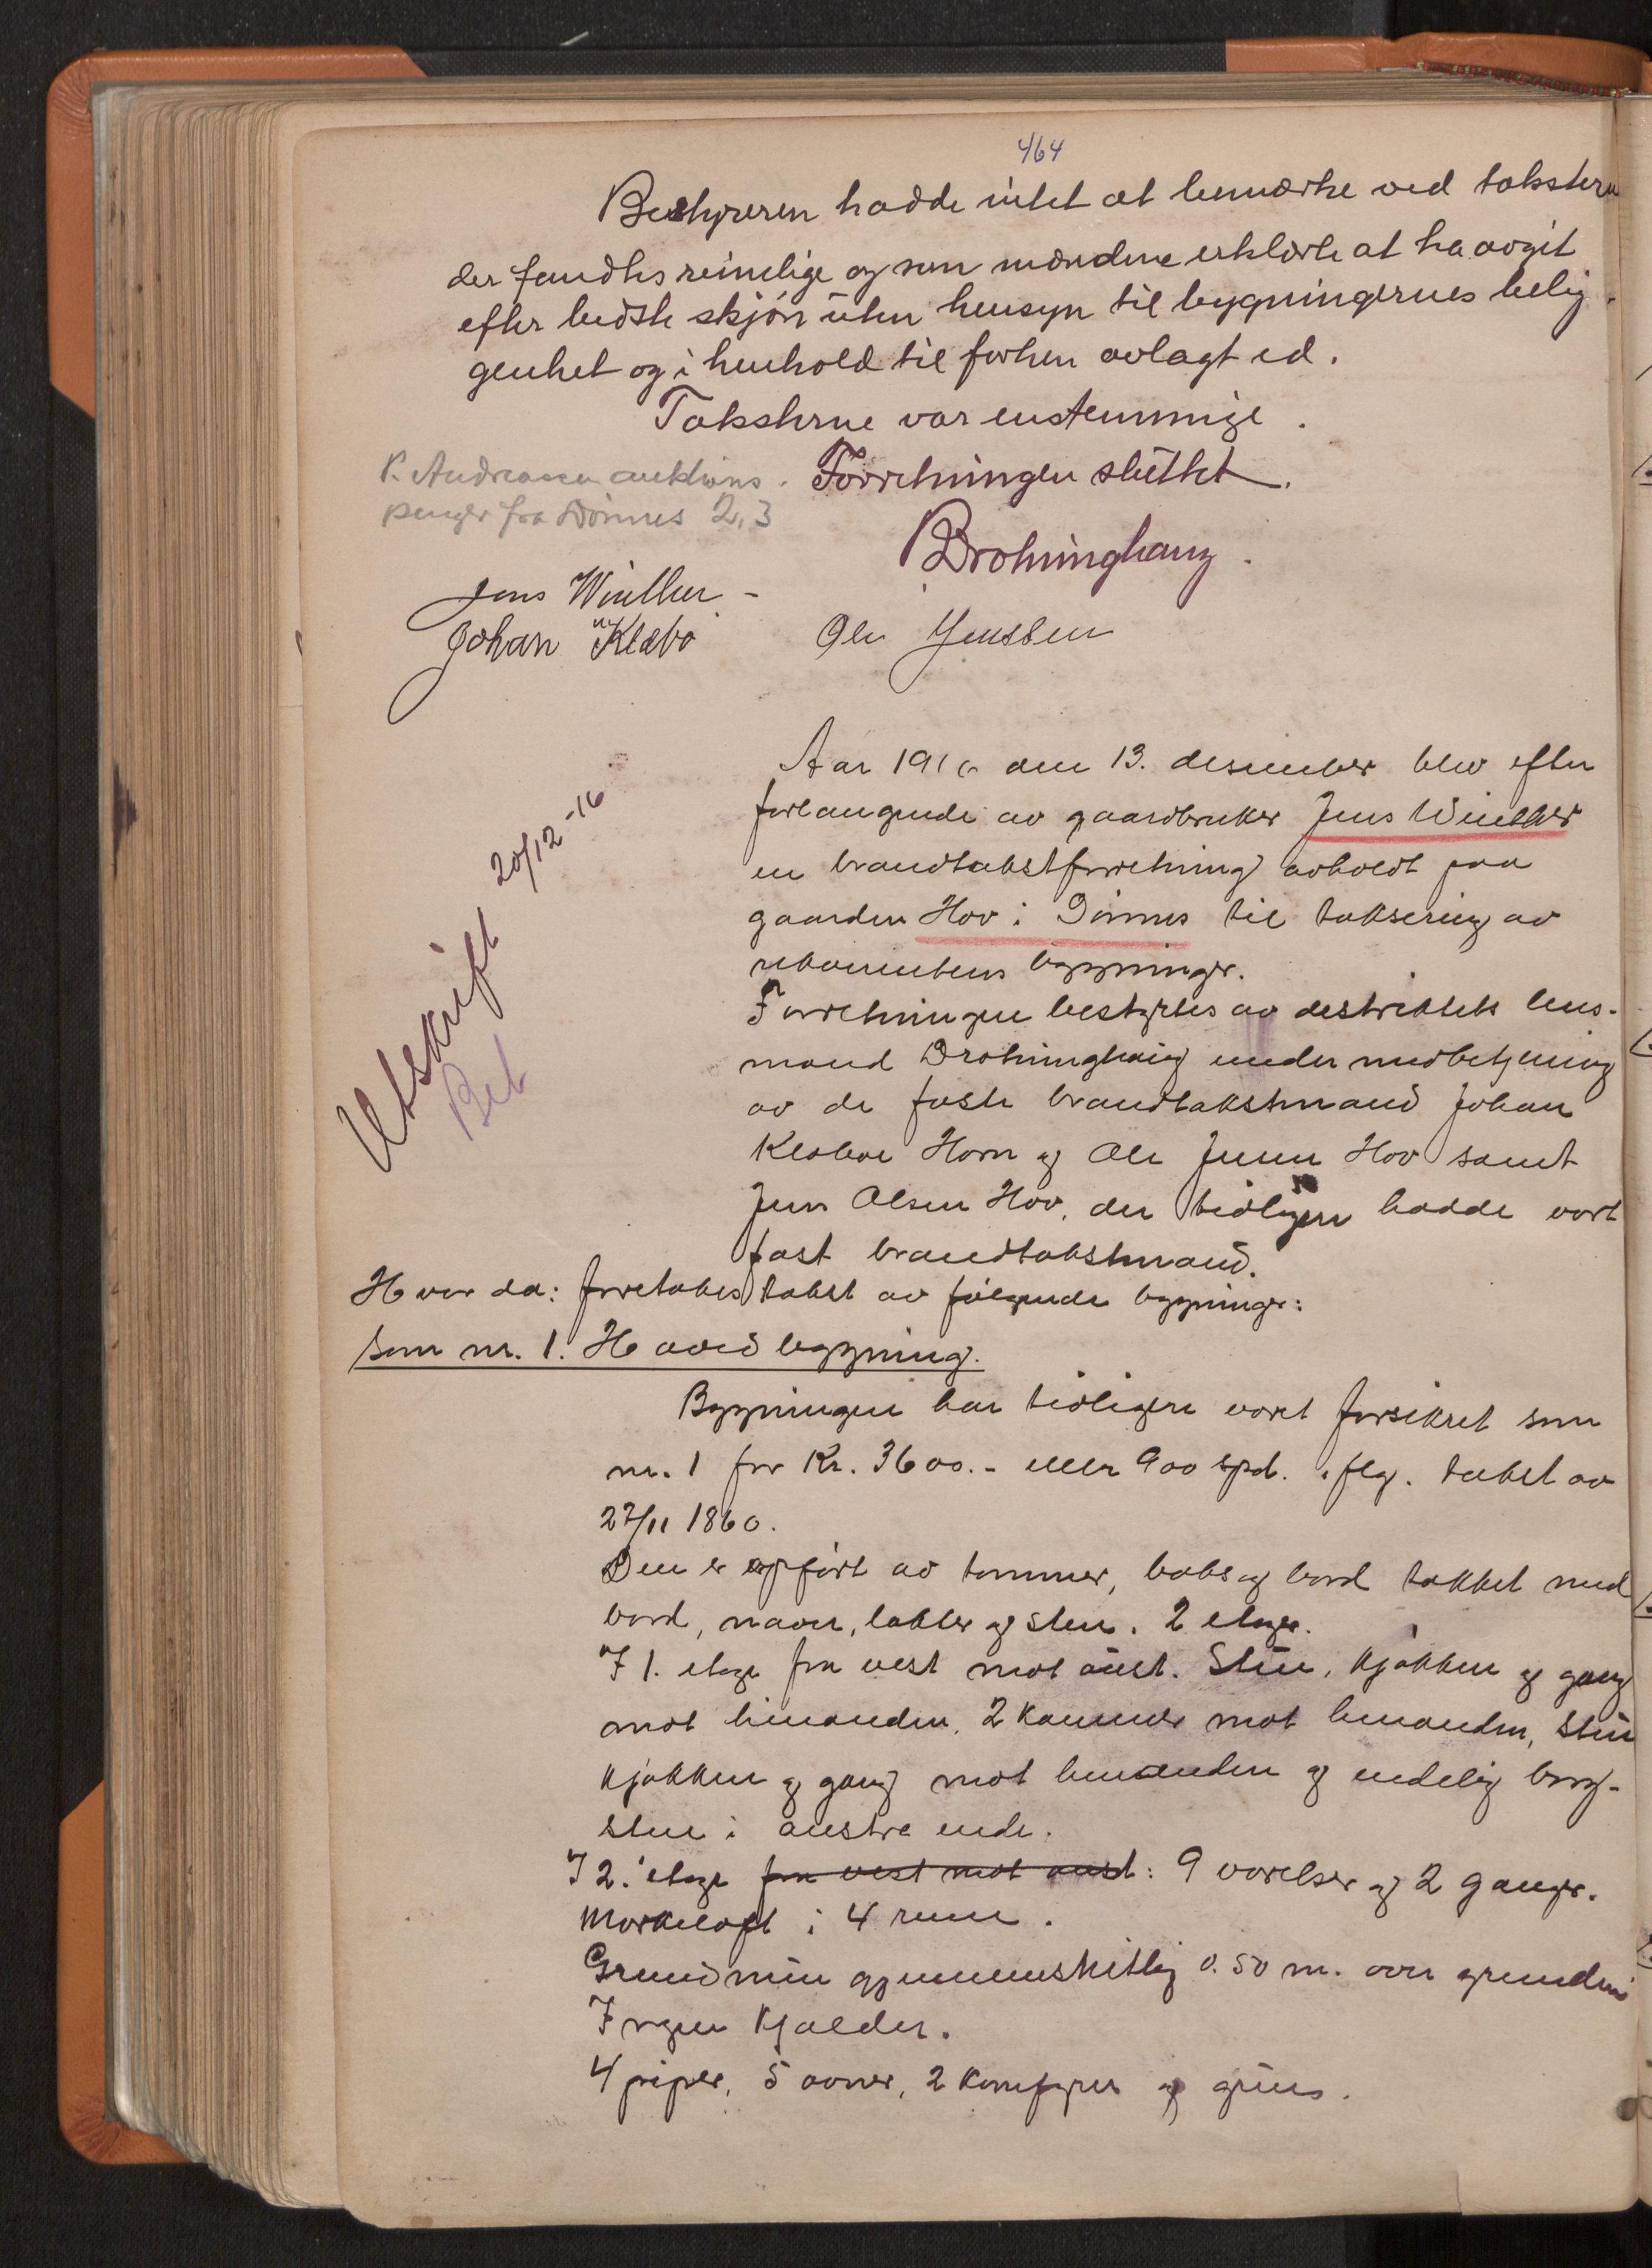 464
Bestyreren hadde intet at bemærke ved taksterne
der fandtes rimelige og som mændene erklærte at ha avgit
efter bedste skjøn uten hensyn til bygningernes belig-
genhet og i henhold til forhen avlagt ed.
Taksterne var enstemmige.
P. Andreasen auktions-
penger fra Dönnes 2,3
Forretningen sluttet.
Brohninghaug.
Jens Winther -
Johan Klæbo
Ole Jenssen
Utskrift 20/12-16
Bet
Aar 1916 den 13. desember blev efter
forlangende av gaardbruker Jens Winther
en brandtakstforretning avholdt paa
gaarden Hov i Dönnes til taksering av
rekvirentens bygninger.
Forretningen bestyrtes av destriktets lens-
mand Drohninghaug under medbetjening
av de faste brandtakstmænd Johan
Klæboe Horn og Ole Jensen Hov samt
Jens Olsen Hov, der tidligere hadde vært
fast brandtakstmand.
Hvor da: foretokes takst av følgende bygninger:
som nr. 1. Hovedbygning.
Bygningen har tidligere været forsikret som
nr. 1 for Kr. 3600.- eller 900 spd. iflg. takst av
27/11 1860.
Den er opført av tømmer, bord takket med
bord, næver, tækker og sten. 2 etager.
I 1. etage fra vest mot aust. Stue, kjøkken og gang
mot hinanden, 2 kammer mot hinanden, stue
kjøkken og gang mot hinanden og endelig borg-
stue i austre ende.
I 2. etage fra vest mot aust: 9 værelser og 2 ganger.
Mørkeloft i 4 rum.
Grundmur gjennemsnitlig 0.50 m. over grunden
Ingen kjælder.
4 piper, 5 ovner, 2 komfyrer og grues.